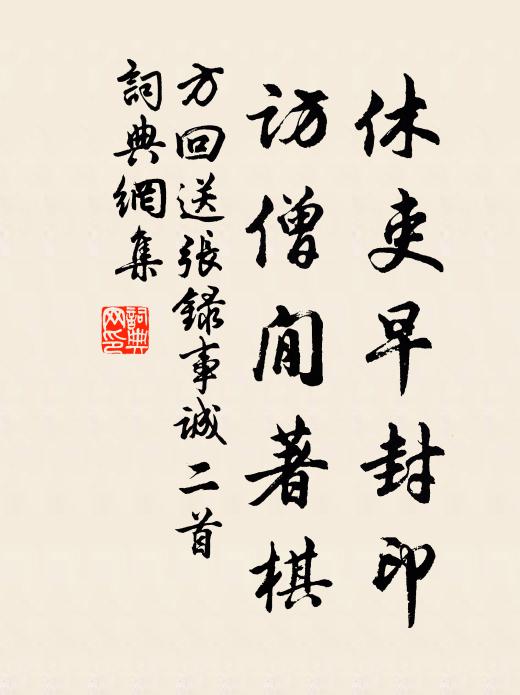 休吏早封印
訪僧閒著棋
方回送張錄事誠二首
詞典網集
詞典网印